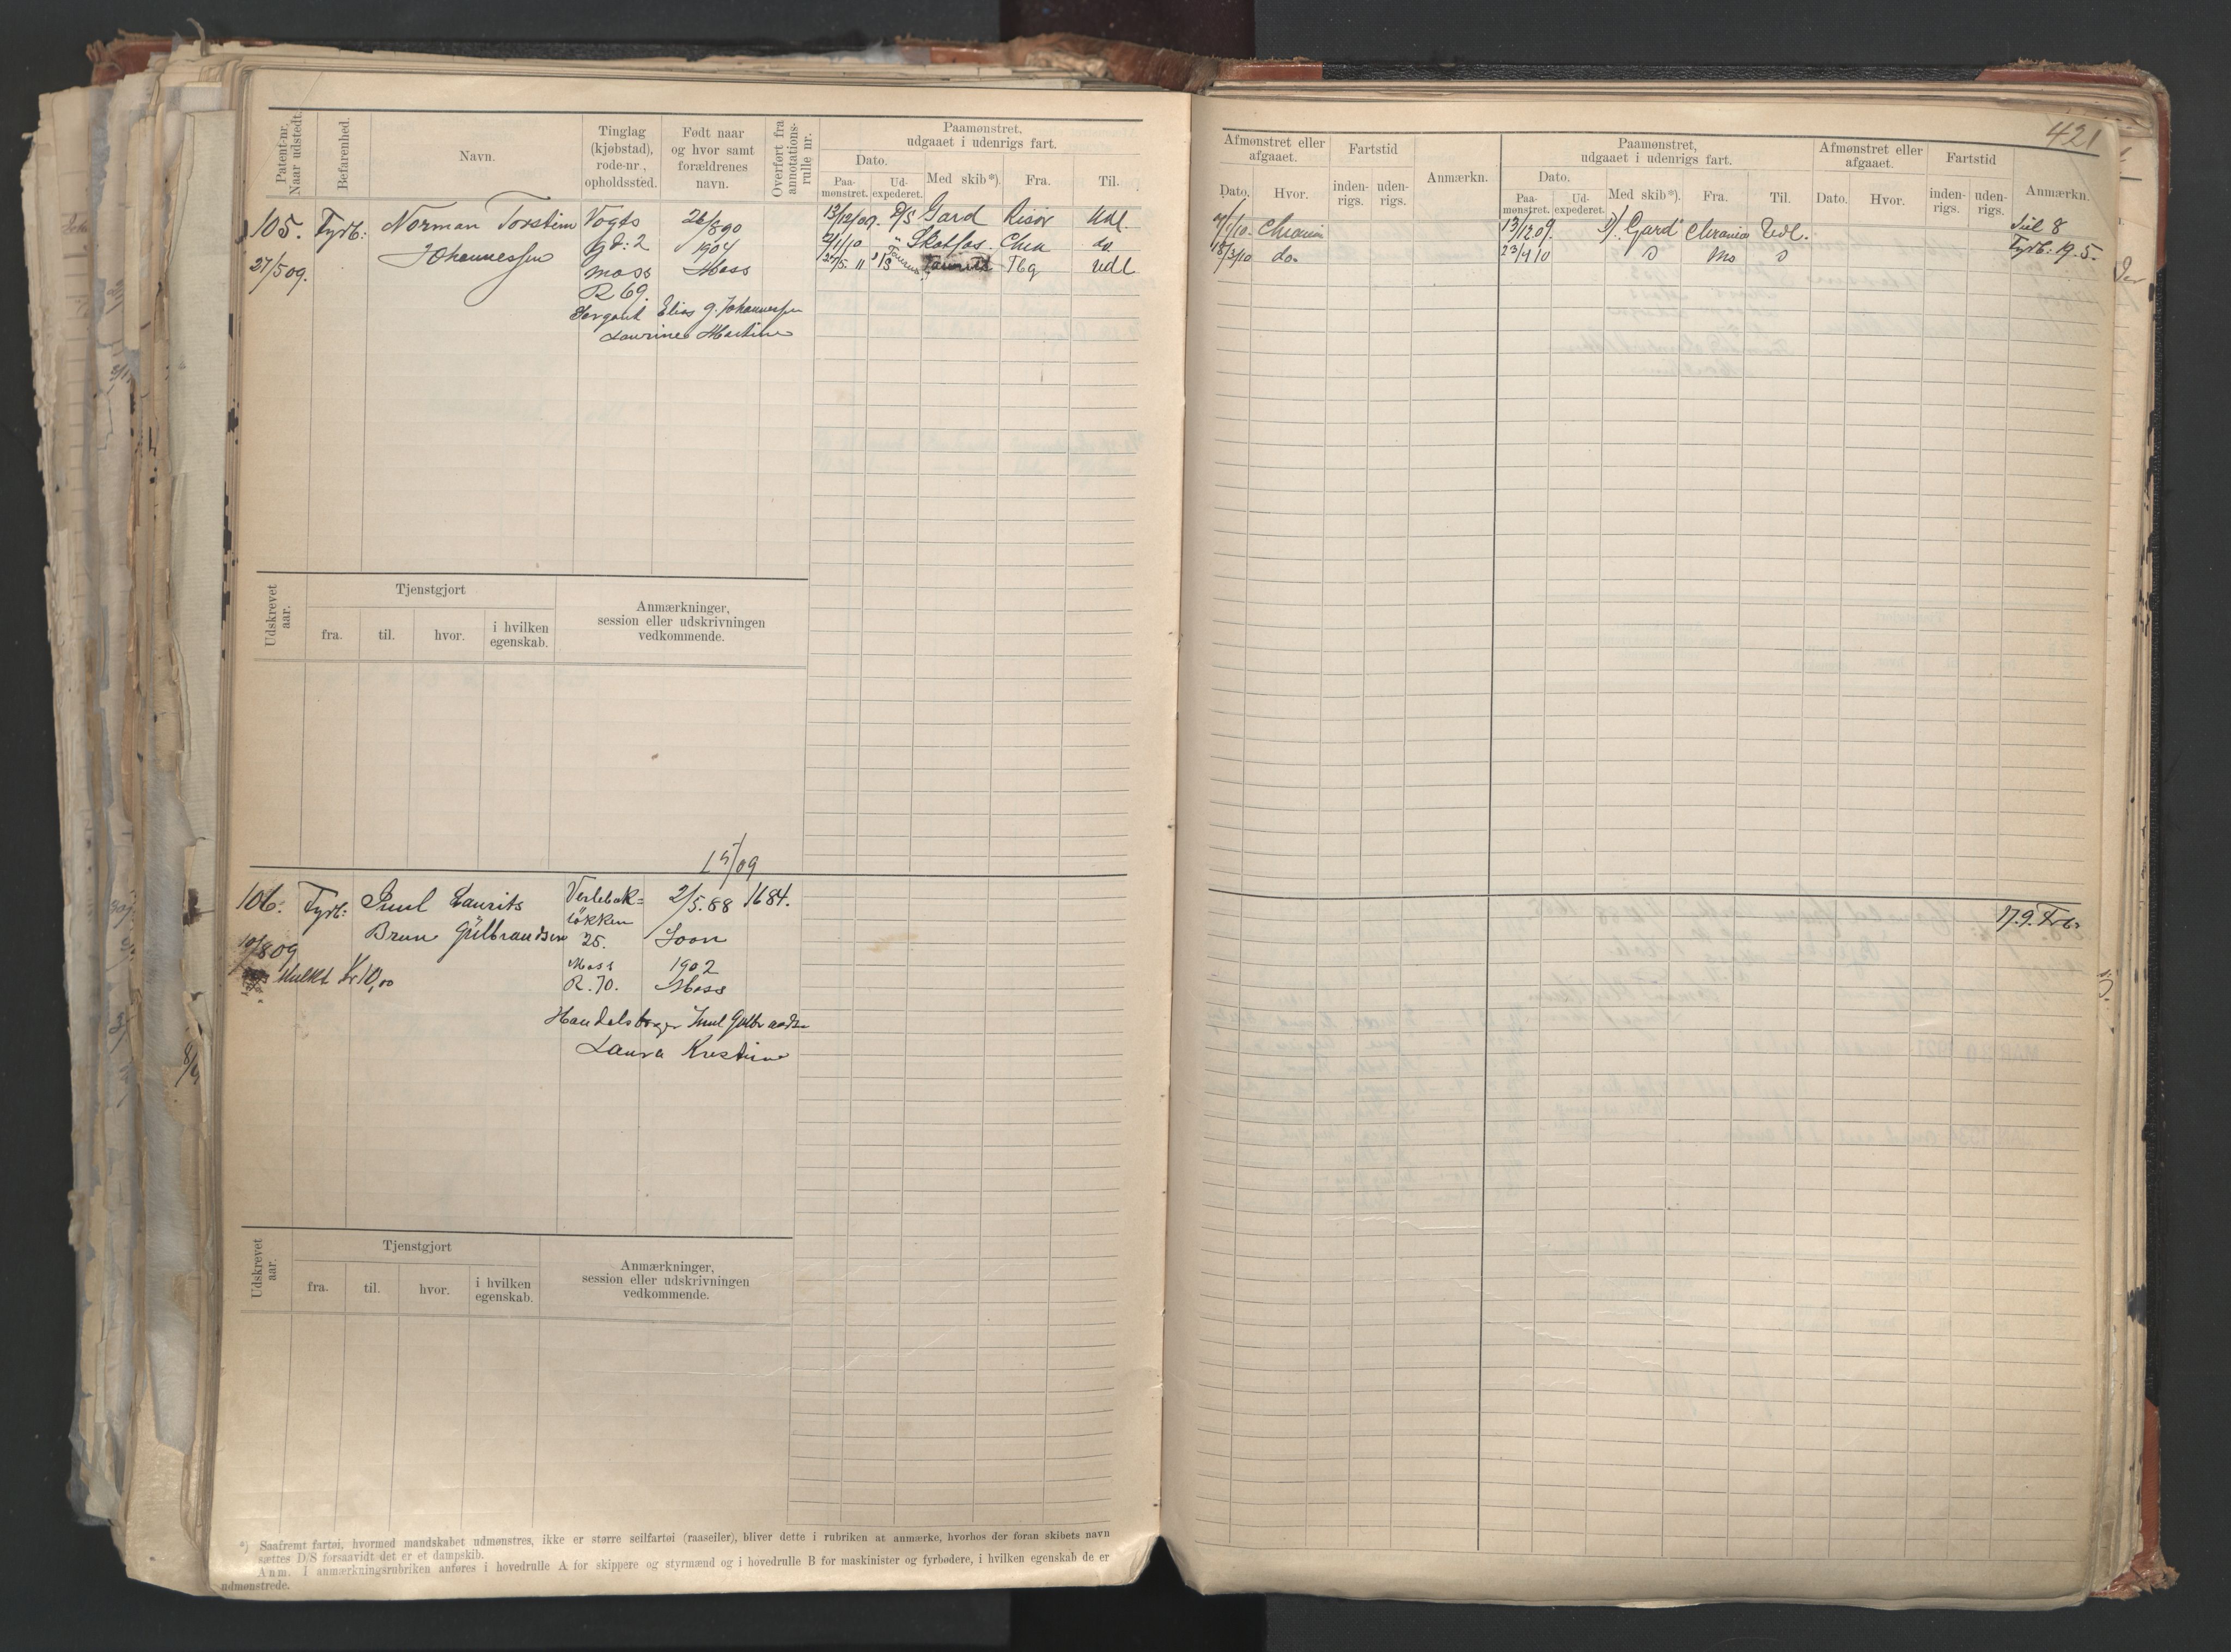 Patent-nr. Naar udstedt.
Befarenhed.
Navn.
Tinglag (kjøbstad), rode-nr., opholdssted.
Født naar og hvor samt forældrenes navn.
Overført fra annotations-rulle nr.
Paamønstret, udgaaet i udenrigs fart.
Dato.
Paa-mønstret.
Ud-expederet.
Med skib*).
Fra.
Til.
105. Fyrb: Norman Torstein Vogts 26/8 90 13/12/09. D/S Gard Risør Udl.
Johannessen gd: 2 1904 2/1/10 " Skotfos Chra do
27/5 09. Moss Moss 27/5. 11 Taurus Tbg udl
R 69.
Sergant Elias G. Johannessen
Laurine Martine
Udskrevet aar.
Tjenstgjort
fra.
til.
hvor.
i hvilken egenskab.
Anmærkninger, session eller udskrivningen vedkommende.
15/09
106. Fyrb: Juul Laurits Verlebak= 2/5. 88 1684.
Brun Gülbrandsen løkken
25. Soon
19/8 09 Moss 1902
Mulkt Kr 10,00 R. 70. Moss
Handelsborger Juul Gulbrands
Laura Kristine
Udskrevet aar.
Tjenstgjort
fra.
til.
hvor.
i hvilken egenskab.
Anmærkninger, session eller udskrivningen vedkommende.
*) Saafremt fartøi, hvormed mandskabet udmønstres, ikke er større seilfartøi (raaseiler), bliver dette i rubriken at anmærke, hvorhos der foran skibets navn
sættes D/S forsaavidt det er et dampskib.
Anm. I anmærkningsrubriken anføres i hovedrulle A for skippere og styrmænd og i hovedrulle B for maskinister og fyrbødere, i hvilken egenskab de er
udmønstrede.
421
Afmønstret eller afgaaet.
Dato.
Hvor.
Fartstid
inden-rigs.
uden-rigs.
Anmærkn.
Paamønstret, udgaaet i udenrigs fart.
Dato.
Paa-mønstret.
Ud-expederet.
Med skib*).
Fra.
Til.
Afmønstret eller afgaaet.
Dato.
Hvor.
Fartstid
inden-rigs.
uden-rigs.
Anmærkn.
Chrania 13/12 09. D/ Gard Chrania Udl. 8
18/3/10 do. 23/4 10 Fyrb: 19.5.
17.9. Frb.